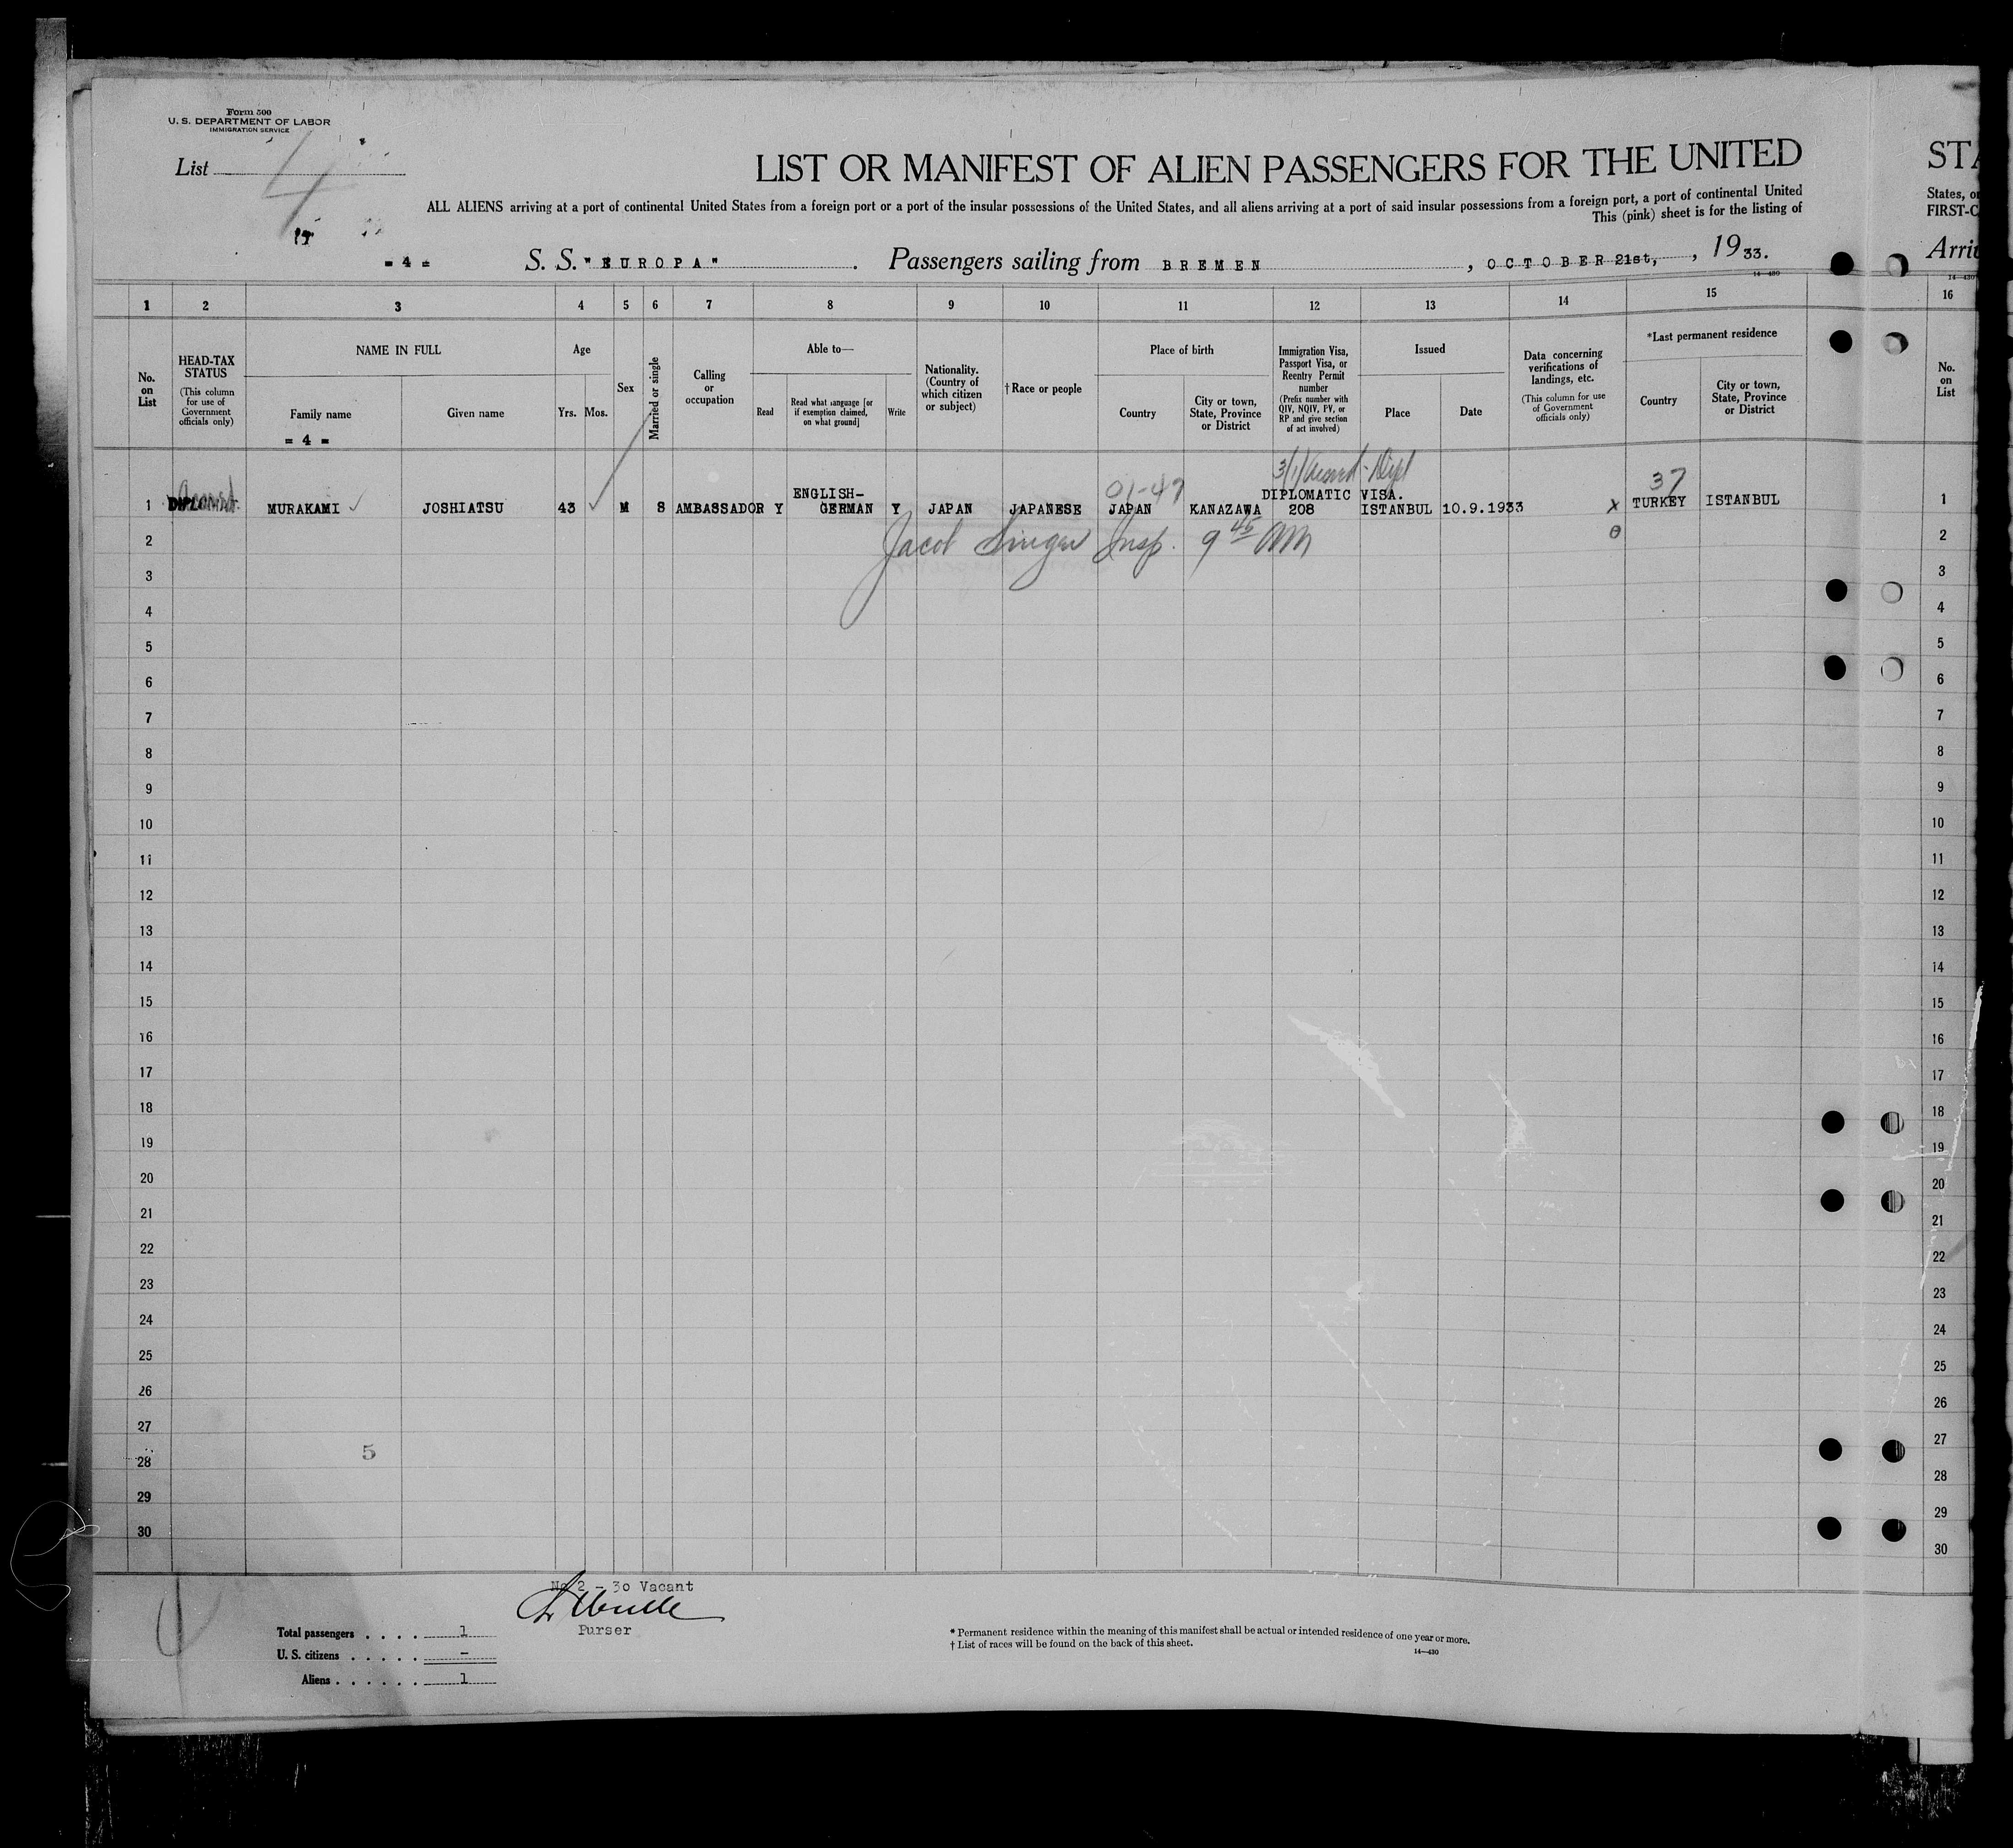 Form 500
U. S. DEPARTMENT OF LABOR
IMMIGRATION SERVICE
List 4
LIST OR MANIFEST OF ALIEN PASSENGERS FOR THE UNITED
STA
ALL ALIENS arriving at a port of continental United States from a foreign port or a port of the insular possessions of the United States, and all aliens arriving at a port of said insular possessions from a foreign port, a port of continental United
States, or
This (pink) sheet is for the listing of
FIRST-C
= 4 =
S. S. "EUROPA". Passengers sailing from BREMEN, OCTOBER 21st, , 1933.
Arriv
14—430
14—430
1 2 3 4 5 6 7 8 9 10 11 12 13 14 15
16
No. on List
HEAD-TAX STATUS
(This column for use of Government officials only)
NAME IN FULL
Family name
Given name
Age
Yrs. Mos.
Sex
Married or single
Calling or occupation
Able to—
Read
Read what language [or if exemption claimed, on what ground]
Write
Nationality. (Country of which citizen or subject)
†Race or people
Place of birth
Country
City or town, State, Province or District
Immigration Visa, Passport Visa, or Reentry Permit number
(Prefix number with QIV, NQIV, PV, or RP and give section of act involved)
Issued
Place
Date
Data concerning verifications of landings, etc.
(This column for use of Government officials only)
*Last permanent residence
Country
City or town, State, Province or District
No. on List
= 4 =
01-49
37
ENGLISH-
DIPLOMATIC VISA.
1 MURAKAMI JOSHIATSU 43 M S AMBASSADOR Y GERMAN Y JAPAN JAPANESE JAPAN KANAZAWA 208 ISTANBUL 10.9.1933 x TURKEY ISTANBUL 1
2 Jacob Singer Insp. 9 45 AM 2
3 3
4 4
5 5
6 6
7 7
8 8
9 9
10 10
11 11
12 12
13 13
14 14
15 15
16 16
17 17
18 18
19 19
20 20
21 21
22 22
23 23
24 24
25 25
26 26
27 27
5
28 28
29 29
30 30
No 2 - 30 Vacant
Purser
Total passengers . . . . 1
U. S. citizens . . . . . -
Aliens . . . . . . 1
* Permanent residence within the meaning of this manifest shall be actual or intended residence of one year or more.
† List of races will be found on the back of this sheet.
14—430